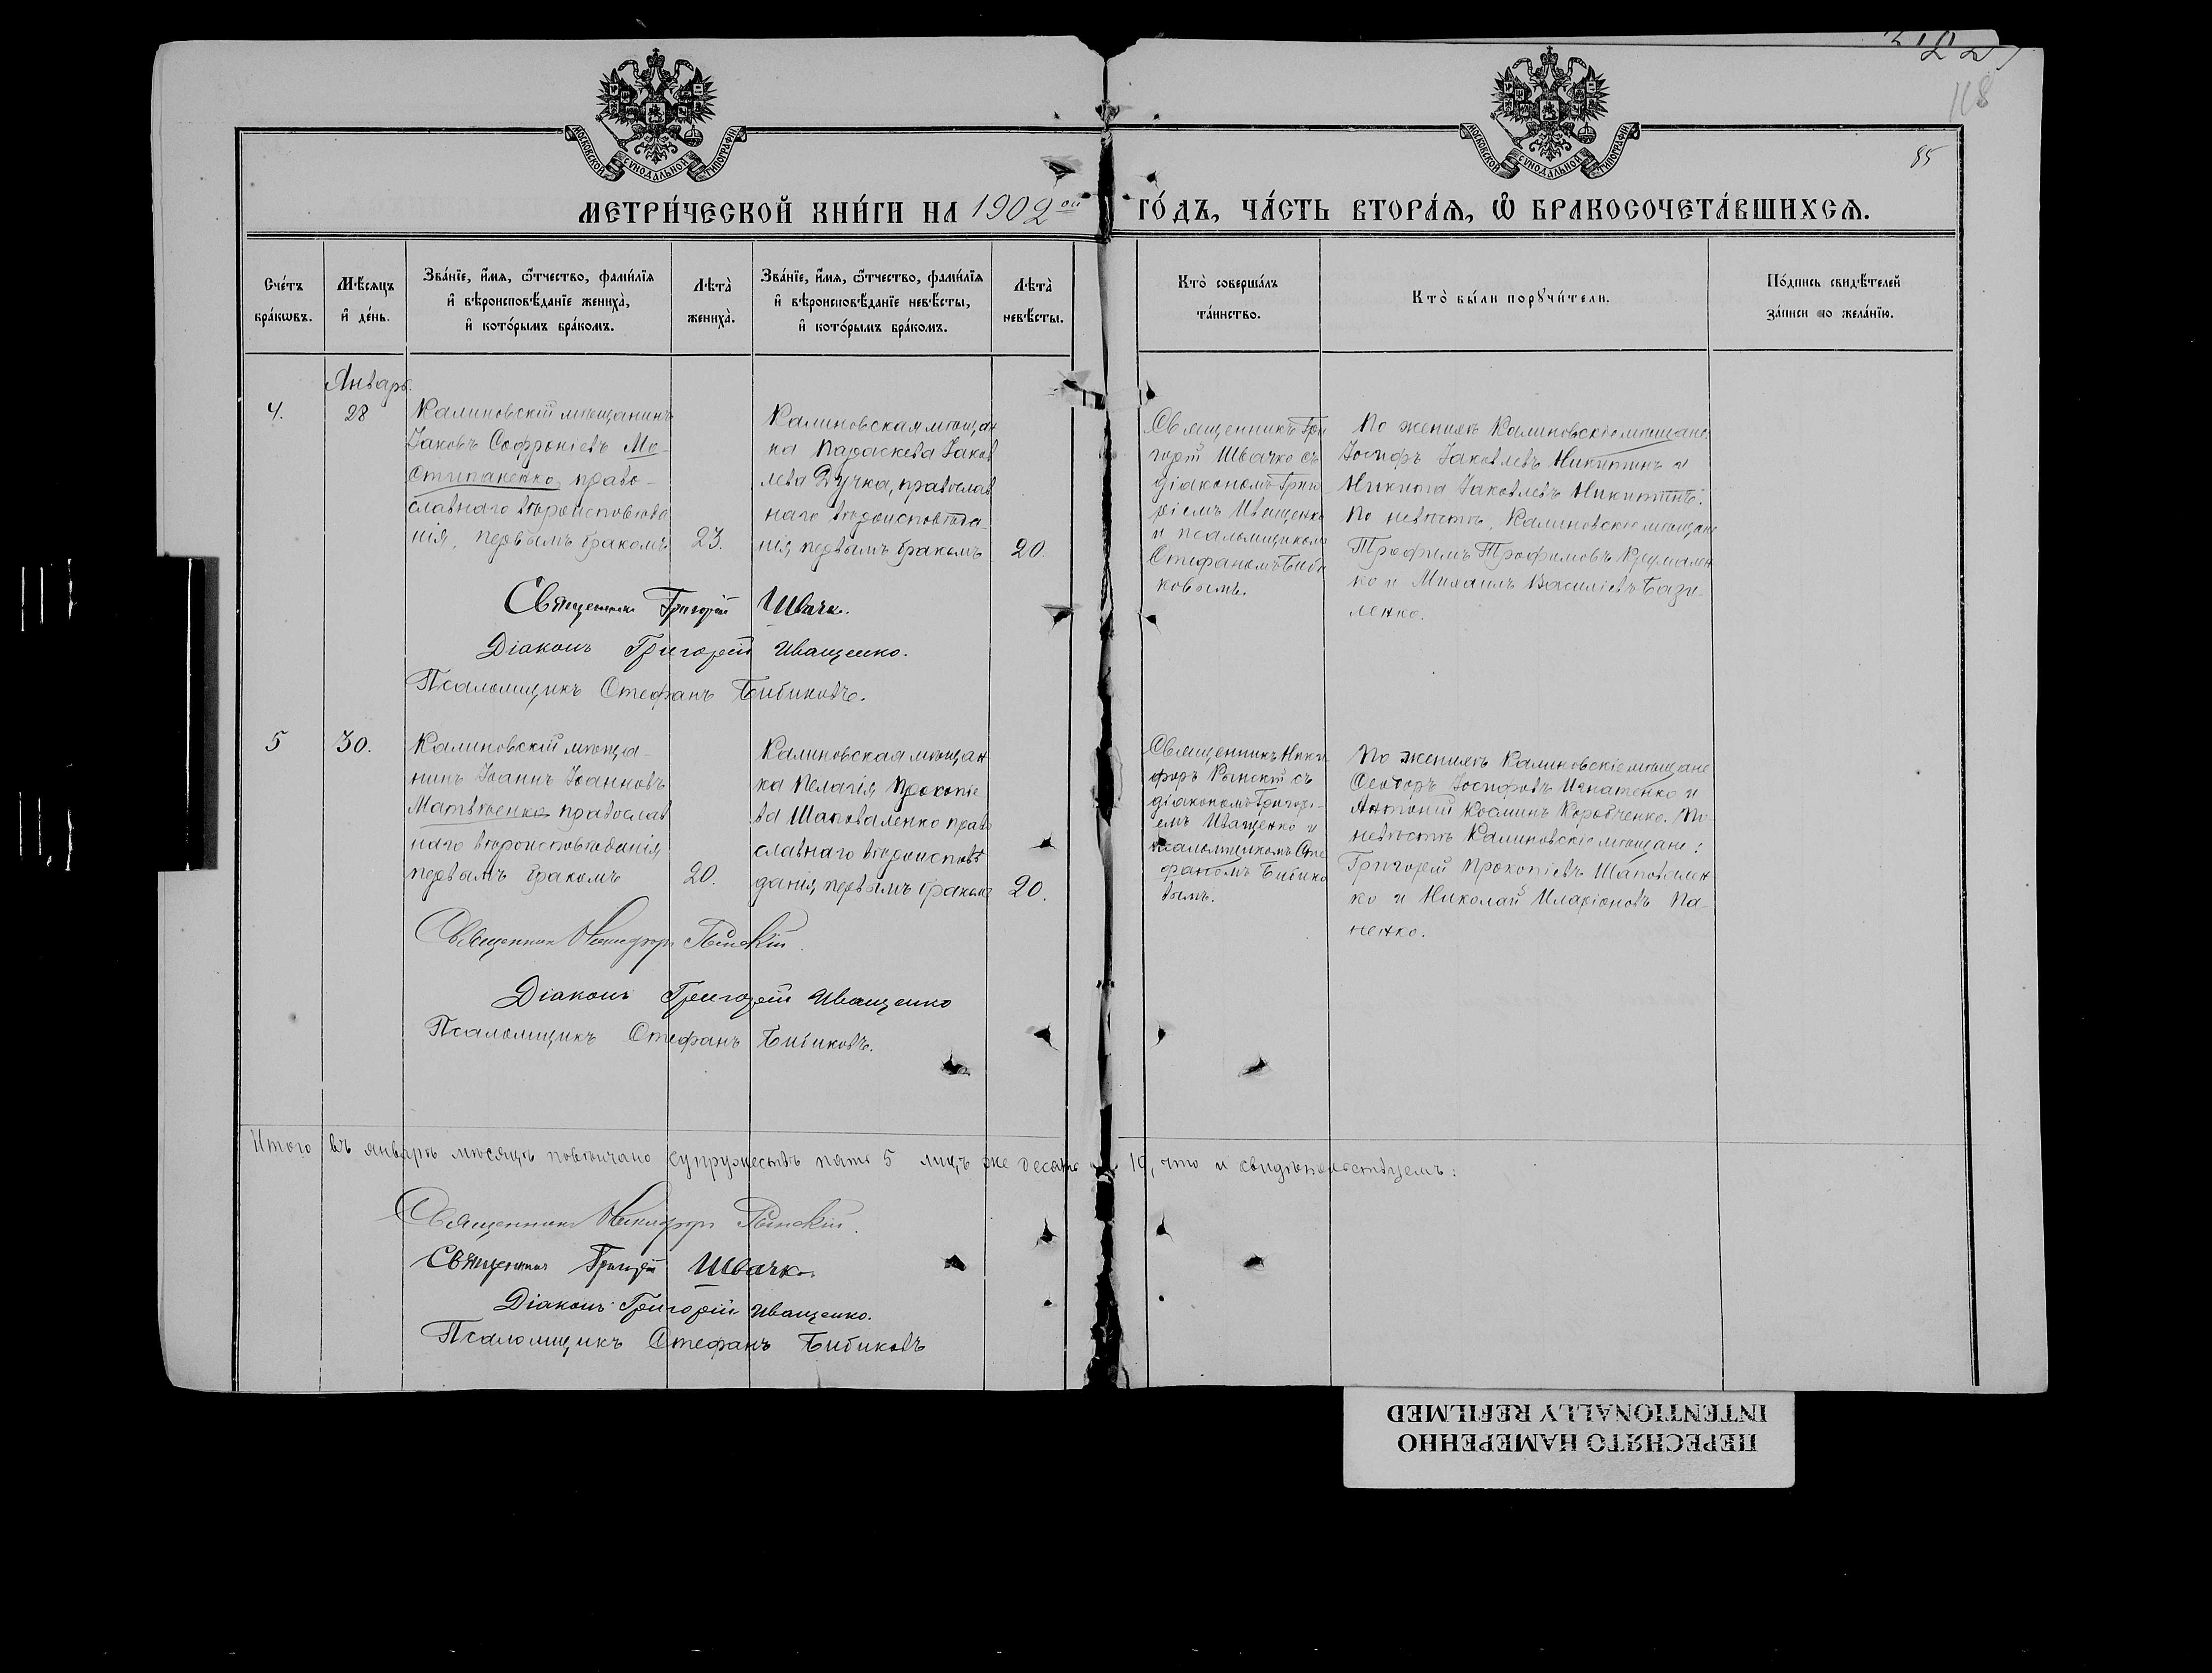 118
85
МОСКОВСКОЙ СѴНОДАЛЬНОЙ ТИПОГРАФІИ
МОСКОВСКОЙ СѴНОДАЛЬНОЙ ТИПОГРАФІИ
МЕТРИ́ЧЕСКОЙ КНИ́ГИ НА 1902ой ГО́ДЪ, ЧА́СТЬ ВТОРА́Я, Ѽ БРАКОСОЧЕТА́ВШИХСЯ.
Сче́тъ
бра́кωвъ.
Мѣ́сяцъ
и҆ де́нь.
Зва́нїе, и҆́мя, ѻ҆́тчество, фами́лїя
и҆ вѣроисповѣ́данїе жениха̀,
и҆ кото́рымъ бра́комъ.
Лѣта̀
жениха̀.
Зва́нїе, и҆́мя, ѻ҆́тчество, фами́лїя
и҆ вѣроисповѣ́данїе невѣ́сты,
и҆ кото́рымъ бра́комъ.
Лѣта̀
невѣ́сты.
Кто̀ соверша́лъ
та́инство.
Кто̀ бы́ли порꙋчи́тели.
По́дпись свидѣ́телей
за́писи по жела́нїю.
Январь.
4.
28
Калиновскій мѣщанинъ
Іаковъ Софроніевъ Мо-
Стипаненко, право-
славнаго вѣроисповѣда
нія, первымъ бракомъ
23.
Калиновская мѣщан
ка Параскева Іаков
лева Дучка, православ
наго вѣроисповѣда
нія первымъ бракомъ
20.
Священникъ Гри
горій Швачко съ
діакономъ Григо
ріемъ Иващенко
и псаломщикомъ
Стефаномъ Биби
ковымъ.
По женихѣ Калиновскіе мѣщане
Іосифъ Іаковлевъ Никитинъ и
Никита Іаковлевъ Никитинъ.
По невѣстѣ, Калиновскіе мѣщане
Трофимъ Трофимовъ
ко и Михаилъ Василіевъ Бази-
ленко.
Священникъ Григорій Швачко.
Діаконъ Григорій Иващенко.
Псаломщикъ Стефанъ Бибиковъ.
5
30.
Калиновскій мѣща-
нинъ Іоаннъ Іоанновъ
Матвѣенко православ
наго вѣроисповѣданія
первымъ бракомъ
20.
Калиновская мѣщан
ка Пелагія Прокопіе
ва Шаповаленко право
славнаго вѣроисповѣ
данія, первымъ бракомъ
20.
Священникъ Ники
форъ Рыпскій съ
діакономъ Григорі-
емъ Иващенко и
псаломщикомъ Сте
фаномъ Бибико
вымъ.
По женихѣ Калиновскіе мѣщане
Ѳеодоръ Іосифовъ Игнатенко и
Антоній Косминъ Коробченко. По
невѣстѣ Калиновскіе мѣщане:
Григорій Прокопіевъ Шаповален
ко и Николай Иларіоновъ Па-
ненко.
Священникъ Никифоръ Рыпскій.
Діаконъ Григорій Иващенко
Псаломщикъ Стефанъ Бибиковъ.
Итого въ январѣ мѣсяцѣ повѣнчано супружествъ пять 5 лицъ же десять 10, что и свидѣтельствуемъ:
Священникъ Никифоръ Рыпскій.
Священникъ Григорій Швачко.
Діаконъ Григорій Иващенко.
Псаломщикъ Стефанъ Бибиковъ
ПЕРЕСНЯТО НАМЕРЕННО
INTENTIONALLY REFILMED